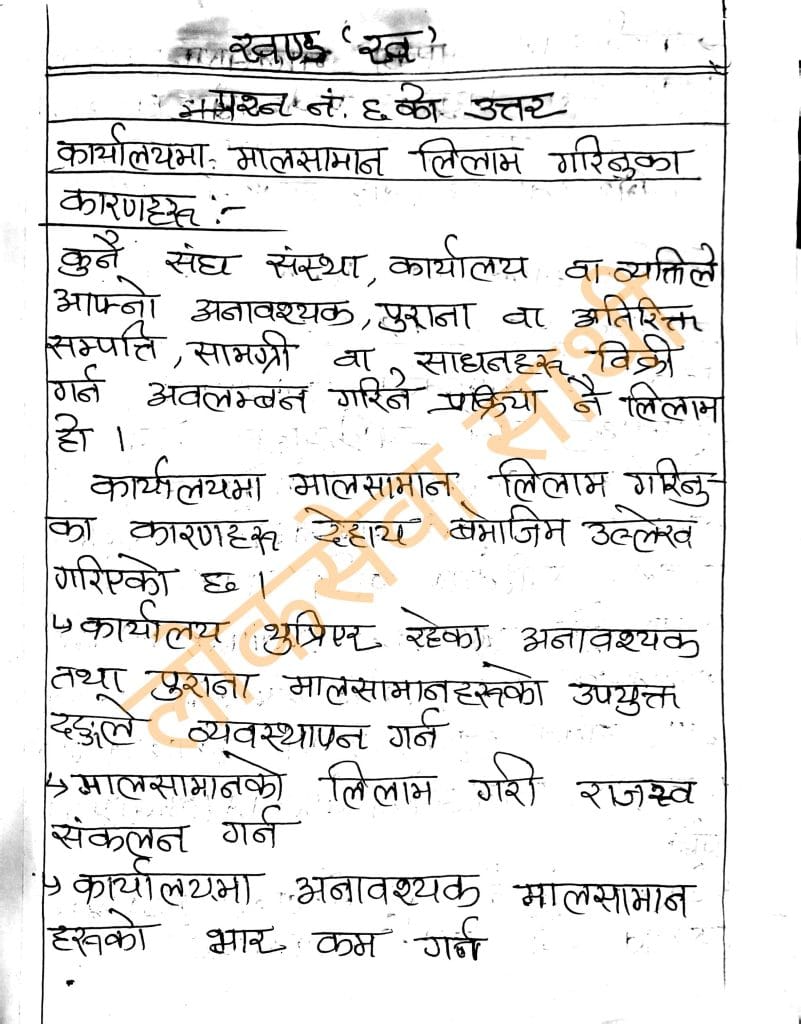 खण्ड 'ख'
प्रश्न नं. ६ को उत्तर
कार्यालयमा मालसामान लिलाम गरिनुका
कारणहरू :-
कुनै संघ संस्था, कार्यालय वा व्यक्तिले
आफ्नो अनावश्यक, पुराना वा अतिरिक्त
सम्पत्ति, सामग्री वा साधनहरू विक्री
गर्न अवलम्बन गरिने प्रक्रिया नै लिलाम
हो ।
कार्यालयमा मालसामान लिलाम गरिनु-
का कारणहरू देहाय बमोजिम उल्लेख
गरिएको छ ।
↳ कार्यालय थुप्रिएर रहेका अनावश्यक
तथा पुराना मालसामानहरूको उपयुक्त
ढङ्गले व्यवस्थापन गर्न
↳ मालसामानको लिलाम गरी राजस्व
संकलन गर्न
↳ कार्यालयमा अनावश्यक मालसामान
हरूको भार कम गर्न
लोकसेवा सारथी